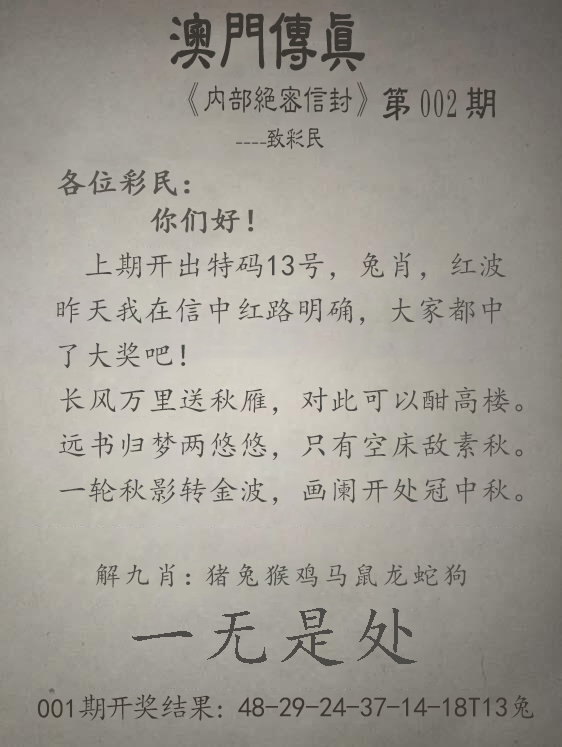 澳門傳眞
《内部絕密信封》第002期
----致彩民
各位彩民：
你们好！
上期开出特码13号，兔肖，红波
昨天我在信中红路明确，大家都中
了大奖吧！
长风万里送秋雁，对此可以酣高楼。
远书归梦两悠悠，只有空床敌素秋。
一轮秋影转金波，画阑开处冠中秋。
解九肖：猪兔猴鸡马鼠龙蛇狗
一无是处
001期开奖结果：48-29-24-37-14-18T13兔